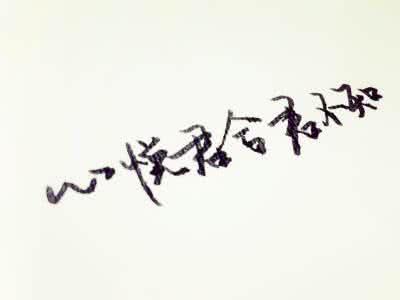 心悦君合君不知